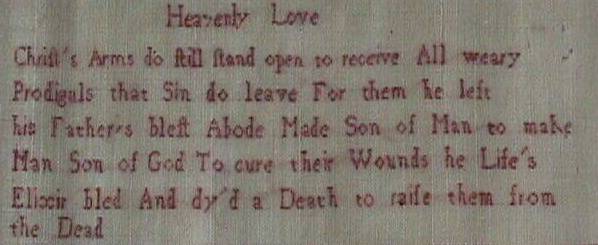 Heavenly Love
Chriſt's Arms do ſtill ſtand open to receive All weary
Prodigals that Sin do leave For them he left
his Father's bleſt Abode Made Son of Man to make
Man Son of God To cure their Wounds he Life's
Elixir bled And dy'd a Death to raiſe them from
the Dead